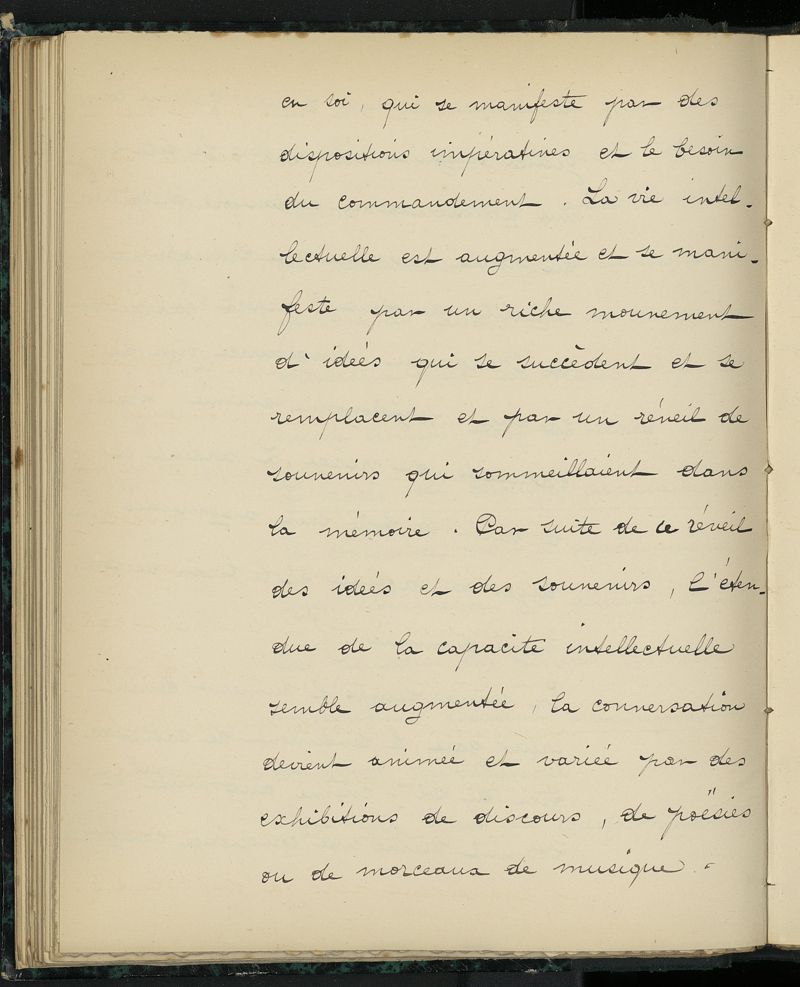 en soi, qui se manifeste par des
dispositions impératives et le besoin
du commandement. La vie intel-
lectuelle est augmentée et se mani-
feste par un riche mouvement
d'ideés qui se succèdent et se
remplacent et par un réveil de
souvenirs qui sommeillaient dans
la mémoire. Par suite de ce réveil
des ideés et des souvenirs, l'éten-
due de la capacité intellectuelle
semble augmentée, la conversation
devient animée et variée par des
exhibitions de discours, de poësies
ou de morceaux de musique. -